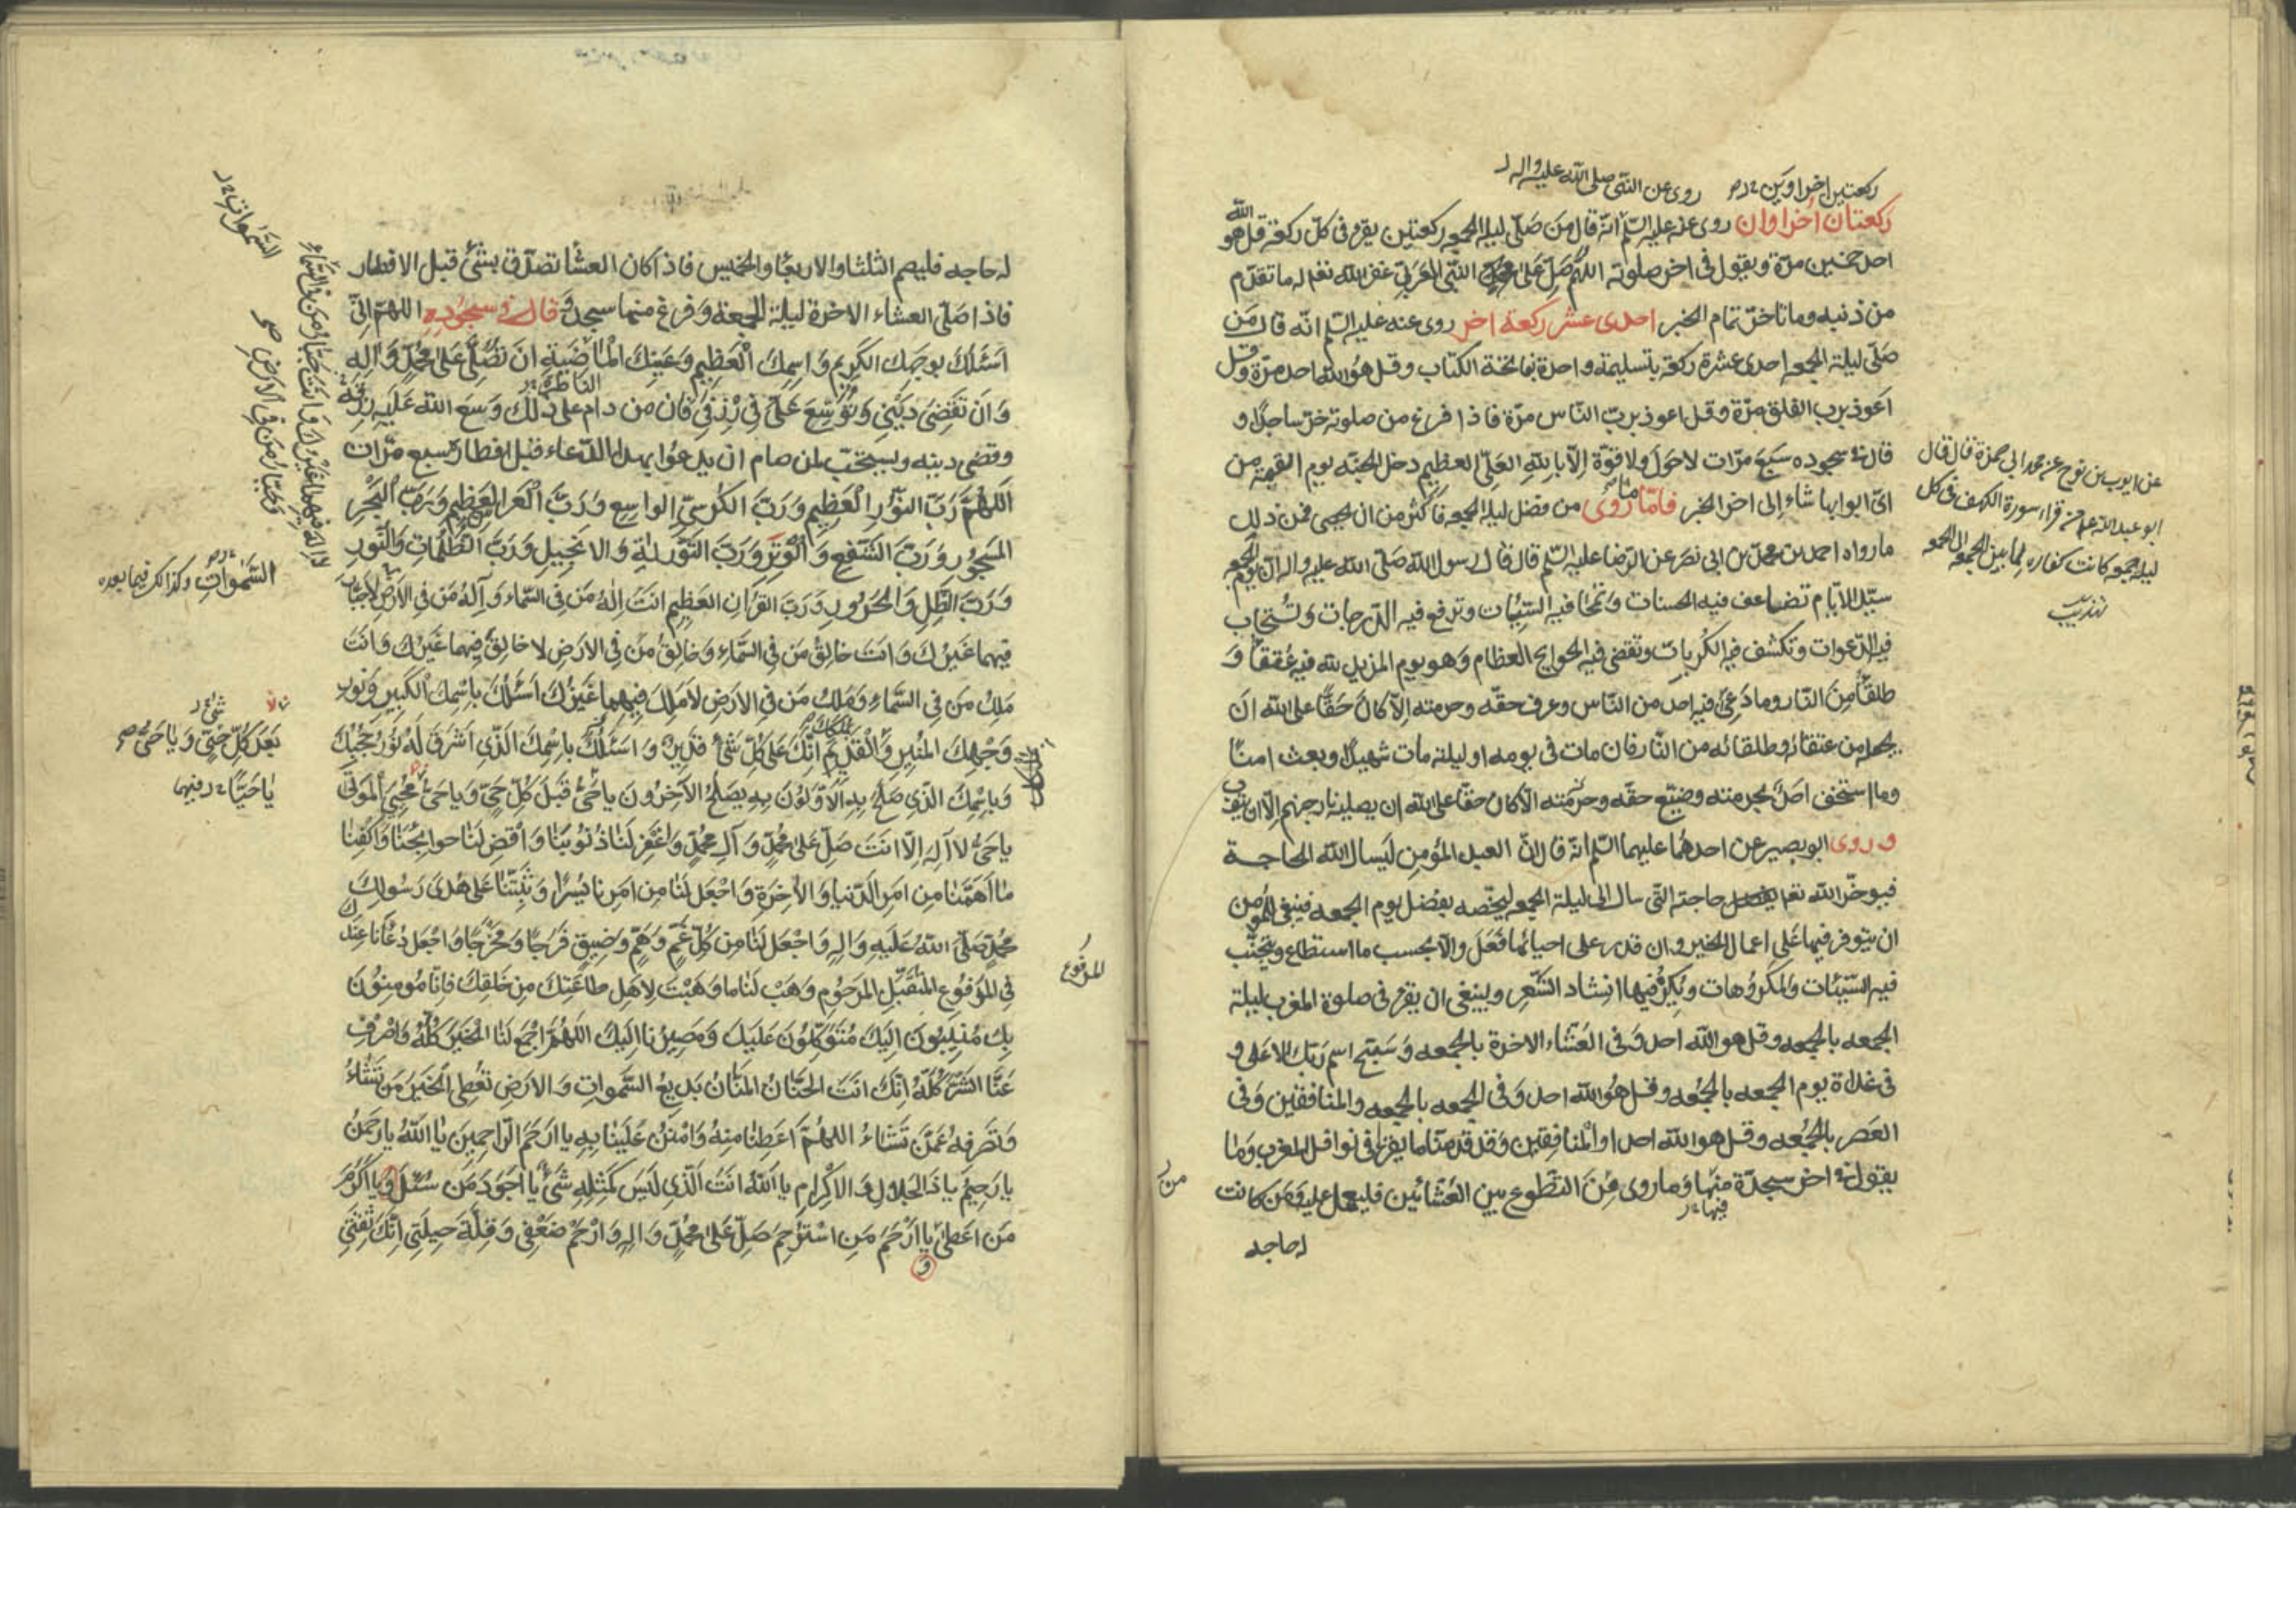 ركعتين اخراوين
روى عن النبى صلى الله عليه واله
ركعتان اخراوان روى عنه عليه السلم انه قال من صلى ليلة الجمعه ركعتين يقرء فى كل ركعة قل هو الله
احد خمسين مرة ويقول فى اخر صلوته اللهم صل على محمد النبى العربى غفر الله تعه له ما تقدم
من ذنبه وما تاخر تمام الخبر احدى عشر ركعة اخر روى عنه عليه السلم انه قال من
صلى ليلة الجمعه احدى عشرة ركعة بتسليمة واحدة بفاتحة الكتاب وقل هو الله احد مرة وقل
اعوذ برب الفلق مرة وقل اعوذ برب الناس مرة فاذا فرغ من صلوته خر ساجدا و
قال فى سجوده سبع مرات لا حول ولا قوة الا بالله العلى العظيم دخل الجنه يوم القيمة من
اى ابوابها شاء الى اخر الخبر فاما ما روى من فضل ليلة الجمعه فاكثر من ان يحصى فمن ذلك
ما رواه احمد بن محمد بن ابى نصر عن الرضا عليه السلم قال قال رسول الله صلى الله عليه واله ان يوم الجمعه
سيد الايام تضاعف فيه الحسنات وتمحا فيه السيئات وترفع فيه الدرجات وتستجاب
فيه الدعوات وتكشف فيه الكربات وتقضى فيه الحوايج العظام وهو يوم المزيد لله فيه عتقا و
طلقا من النار وما دعى فيه احد من الناس وعرف حقه وحرمته الا كان حقا على الله ان
يجعله من عتقائه وطلقائه من النار فان مات فى يومه او ليلته مات شهيدا وبعث امنا
وما استخف احد بحرمته وضيع حقه وحرمته الا كان حقا على الله ان يصليه نار جهنم الا ان يتوب
وروى ابو بصير عن احدهما عليهما السلم انه قال ان العبد المؤمن ليسال الله الحاجة
فيوخر الله تعه حاجته التى سال الى ليلة الجمعه ليخصه بفضل يوم الجمعه فينبغى للمؤمن
ان يتوفر فيها على اعمال الخير وان قدر على احيائها فعل والا بحسب ما استطاع ويتجنب
فيه السيئات والمكروهات ويكره فيها انشاد الشعر وينبغى ان يقرء فى صلوة المغرب ليلة
الجمعه بالجمعه وقل هو الله احد وفى العشاء الاخرة بالجمعه وسبح اسم ربك الاعلى و
فى غداة يوم الجمعه بالجمعه وقل هو الله احد وفى الجمعه بالجمعه والمنافقين وفى
العصر بالجمعه وقل هو الله احد او المنافقين وقد قدمنا ما يقرء فى نوافل المغرب وما
يقول فى اخر سجدة منها وما روى من التطوع بين العشائين فليعمل عليه ومن كانت
فيها
له حاجه
عن ايوب بن نوح عن محمد ابى حمزة قال قال
ابو عبد الله من قراء سورة الكهف فى كل
ليلة جمعه كانت كفاره لما بين الجمعه الى الجمعه
تهذيب
من
له حاجه فليصم الثلثا والاربعا والخميس فاذا كان العشا تصدق بشئ قبل الافطار
فاذا صلى العشاء الاخرة ليلة الجمعة وفرغ منها سجد و قال فى سجوده اللهم انى
اسئلك بوجهك الكريم واسمك العظيم وعينك الماضية ان تصلى على محمد واله
الناظرة
وان تقضى دينى وتوسع على فى رزقى فان من دام على ذلك وسع الله عليه رزقه
وقضى دينه ويستحب لمن صام ان يدعوا بهذا الدعاء قبل افطاره سبع مرات
اللهم رب النور العظيم ورب الكرسى الواسع ورب العرش العظيم ورب البحر
المسجور ورب الشفع والوتر ورب التورية والانجيل ورب الظلمات والنور
ورب الظل والحرور ورب القران العظيم انت اله من فى السماء واله من فى الارض لا جبار
فيهما غيرك وانت خالق من فى السماء وخالق من فى الارض لا خالق فيهما غيرك وانت
ملك من فى السماء وملك من فى الارض لا ملك فيهما غيرك اسئلك باسمك الكبير ونور
وجهك المنير والقديم انك على كل شئ قدير واسئلك باسمك الذى اشرق له نور حجبك
وباسمك الذى صلح به الاولون وبه يصلح الاخرون يا حى قبل كل حى ويا حى محيى الموتى
يا حى لا اله الا انت صل على محمد وال محمد واغفر لنا ذنوبنا واقض لنا حوايجنا واكفنا
ما اهمنا من امر الدنيا والاخرة واجعل لنا من امرنا يسرا وثبتنا على هدى رسولك
محمد صلى الله عليه واله واجعل لنا من كل غم وهم وضيق فرجا ومخرجا واجعل دعانا عندك
فى المرفوع المتقبل المرحوم وهب لنا ما وهبت لاهل طاعتك من خلقك فانا مومنون
بك منيبون اليك متوكلون عليك ومصيرنا اليك اللهم اجمع لنا الخير كله واصرف
عنا الشر كله انك انت الحنان المنان بديع السموات والارض تعطى الخير من تشاء
وتصرفه عمن تشاء اللهم اعطنا منه وامنن علينا به يا ارحم الراحمين يا الله يا رحمن
يا رحيم يا ذا الجلال والاكرام يا الله انت الذى ليس كمثله شئ يا اجود من سئل ويا اكرم
من اعطى يا ارحم من استرحم صل على محمد واله وارحم ضعفى وقلة حيلتى انك ثقتى
و
السموات
لا اله فيهما غيرك وانت جبار من فى السماء
وجبار من فى الارض صح
السموات وكذا كر فيما بعده
شئ
بعد كل حى ويا حى
يا حيا فيهما
المرفوع